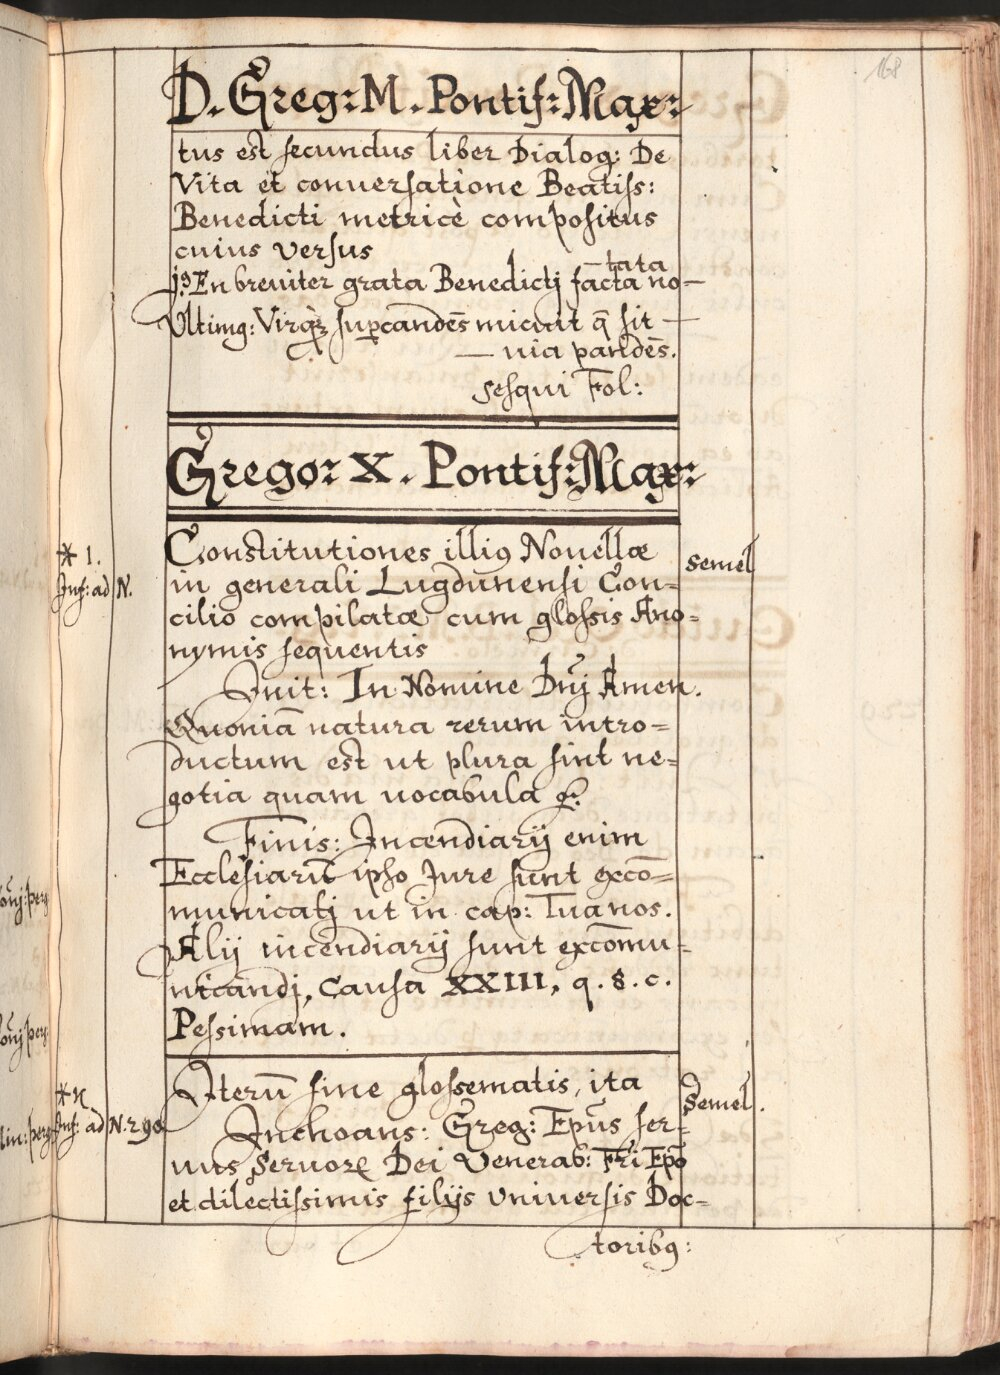 168
D. Greg: M. Pontif: Max:
tus est secundus liber Dialog: De
Vita et conuersatione Beatiss:
Benedicti metricè compositus
cuius versus
—tata
j9 En breuiter grata Benedictj facta no—
Ultimg: supcandēs micuit q̄ sit —
— uia pandēs.
Sesqui Fol:
Grego: X. Pontif: Max:
* 1.
Inf: ad N.
Constitutiones illi9 Nouellæ
semel
in generali Lugdunensi Con=
cilio compilatæ cum glossis Ano=
nymis sequentis
Init: In Nomine Dnj Amen.
Quoniā natura rerum intro=
ductum est ut plura sint ne=
gotia quam uocabula &.
Finis: Incendiarij enim
Ecclesiarū ipso Jure sunt excō=
municatj ut in cap: Tua nos.
Alij incendiarij sunt excōmu=
nicandj, Causa XXIII, q. 8. c.
Pessimam.
Iterū sine glossematis, ita
Semel.
Inf: ad N. 290
Inchoans: Greg: Epūs ser=
uus Seruorꝝ Dei Venerab: Fri Epō
et dilectissimis filijs vniuersis Doc=
torib9: